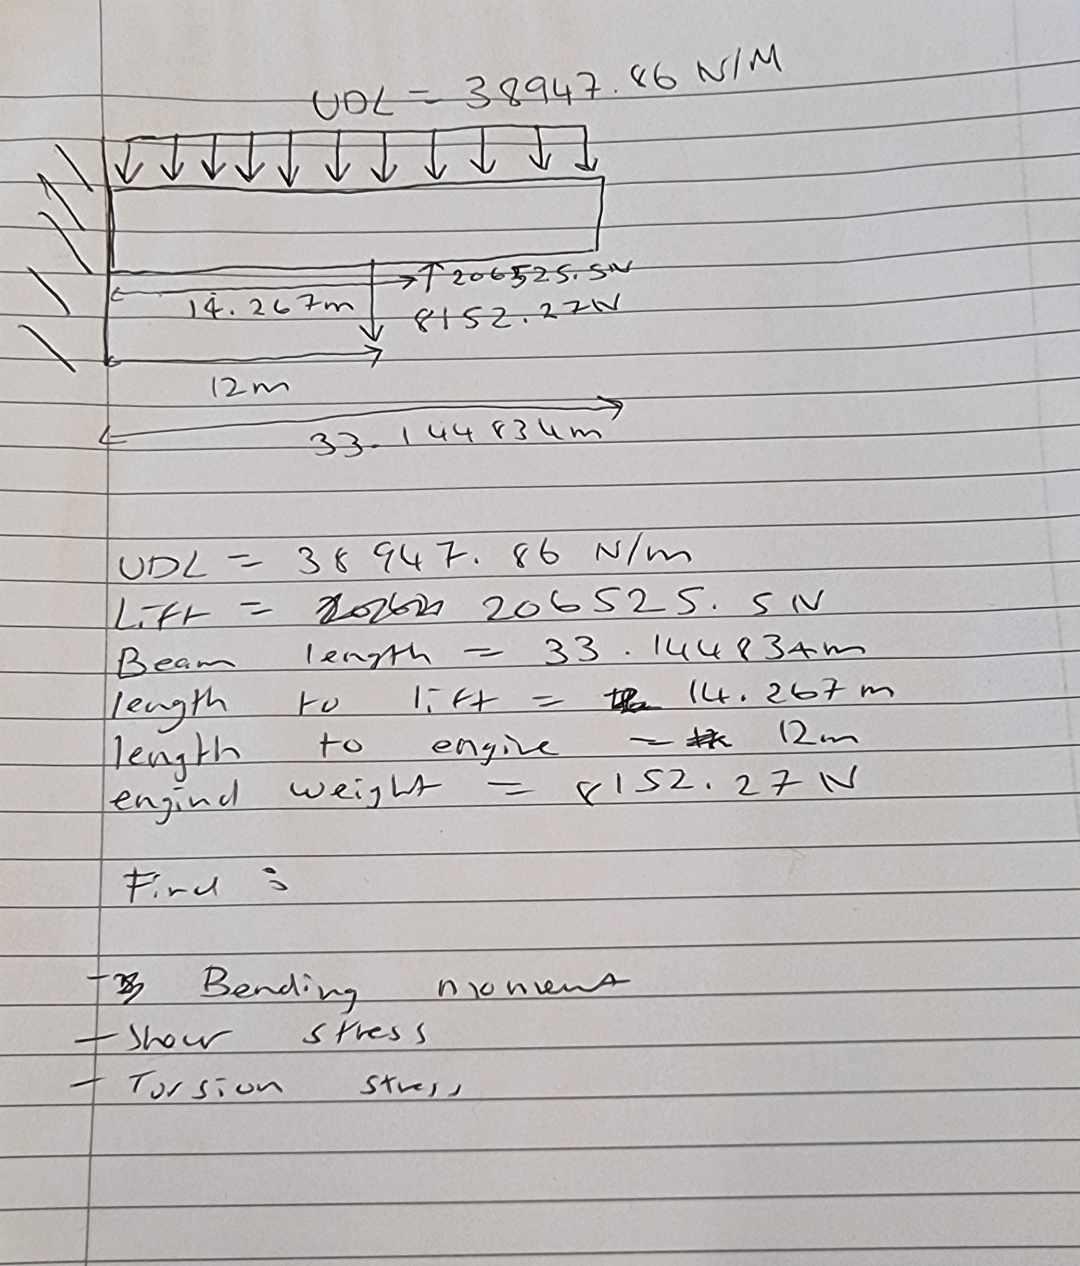 UDL = 38947.86 N/M
206525.5N
14.267m
8152.27N
12m
33.144834m
UDL = 38947.86 N/m
Lift = 206525.5N
Beam length = 33.144834m
length to lift = 14.267m
length to engine = 12m
engind weight = 8152.27N
Find :
- Bending moment
- Shear stress
- Torsion stress